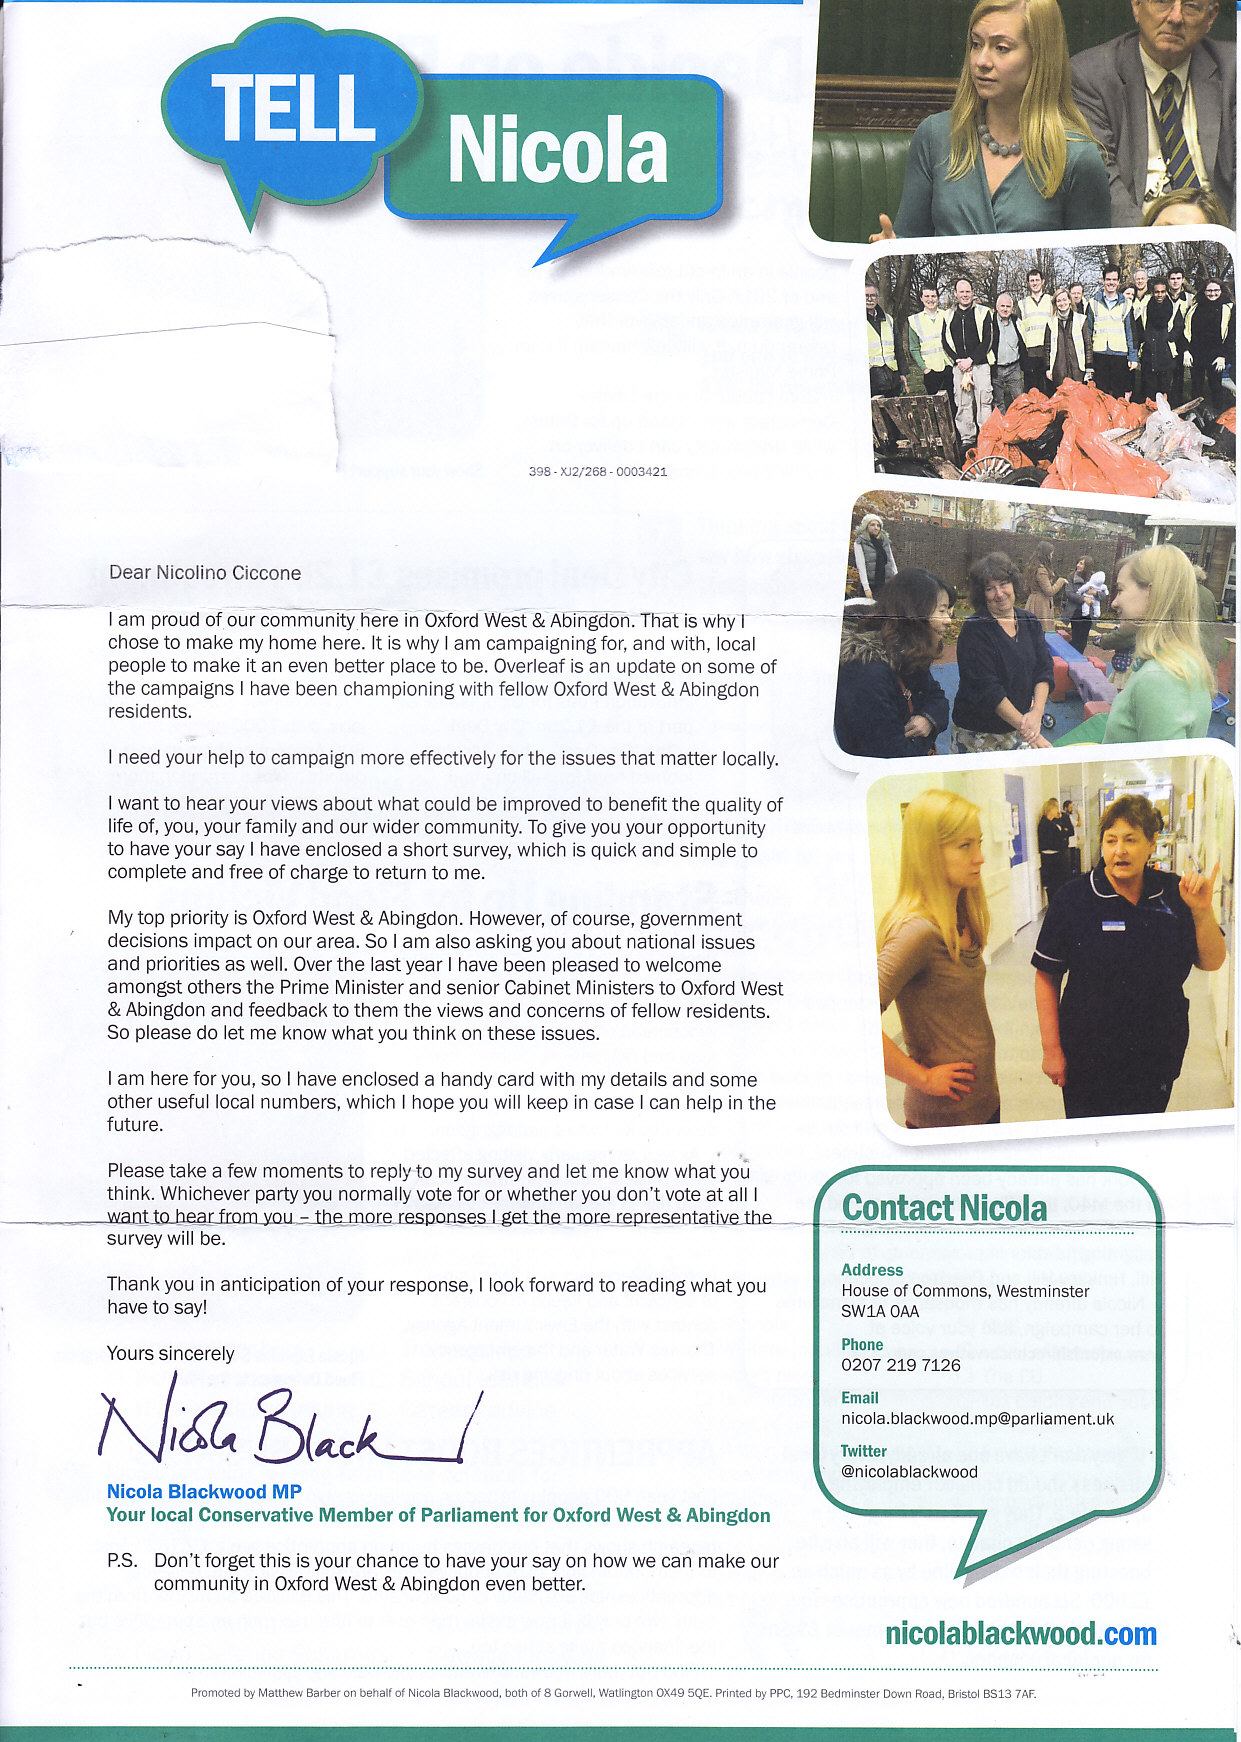 TELL
Nicola
398 - XJ2/268 - 0003421
Dear Nicolino Ciccone
I am proud of our community here in Oxford West & Abingdon. That is why I
chose to make my home here. It is why I am campaigning for, and with, local
people to make it an even better place to be. Overleaf is an update on some of
the campaigns I have been championing with fellow Oxford West & Abingdon
residents.
I need your help to campaign more effectively for the issues that matter locally.
I want to hear your views about what could be improved to benefit the quality of
life of, you, your family and our wider community. To give you your opportunity
to have your say I have enclosed a short survey, which is quick and simple to
complete and free of charge to return to me.
My top priority is Oxford West & Abingdon. However, of course, government
decisions impact on our area. So I am also asking you about national issues
and priorities as well. Over the last year I have been pleased to welcome
amongst others the Prime Minister and senior Cabinet Ministers to Oxford West
& Abingdon and feedback to them the views and concerns of fellow residents.
So please do let me know what you think on these issues.
I am here for you, so I have enclosed a handy card with my details and some
other useful local numbers, which I hope you will keep in case I can help in the
future.
Please take a few moments to reply to my survey and let me know what you
think. Whichever party you normally vote for or whether you don't vote at all I
want to hear from you – the more responses I get the more representative the
survey will be.
Thank you in anticipation of your response, I look forward to reading what you
have to say!
Yours sincerely
Nicola Blackwood
Nicola Blackwood MP
Your local Conservative Member of Parliament for Oxford West & Abingdon
P.S. Don't forget this is your chance to have your say on how we can make our
community in Oxford West & Abingdon even better.
Contact Nicola
Address
House of Commons, Westminster
SW1A 0AA
Phone
0207 219 7126
Email
nicola.blackwood.mp@parliament.uk
Twitter
@nicolablackwood
nicolablackwood.com
Promoted by Matthew Barber on behalf of Nicola Blackwood, both of 8 Gorwell, Watlington OX49 5QE. Printed by PPC, 192 Bedminster Down Road, Bristol BS13 7AF.